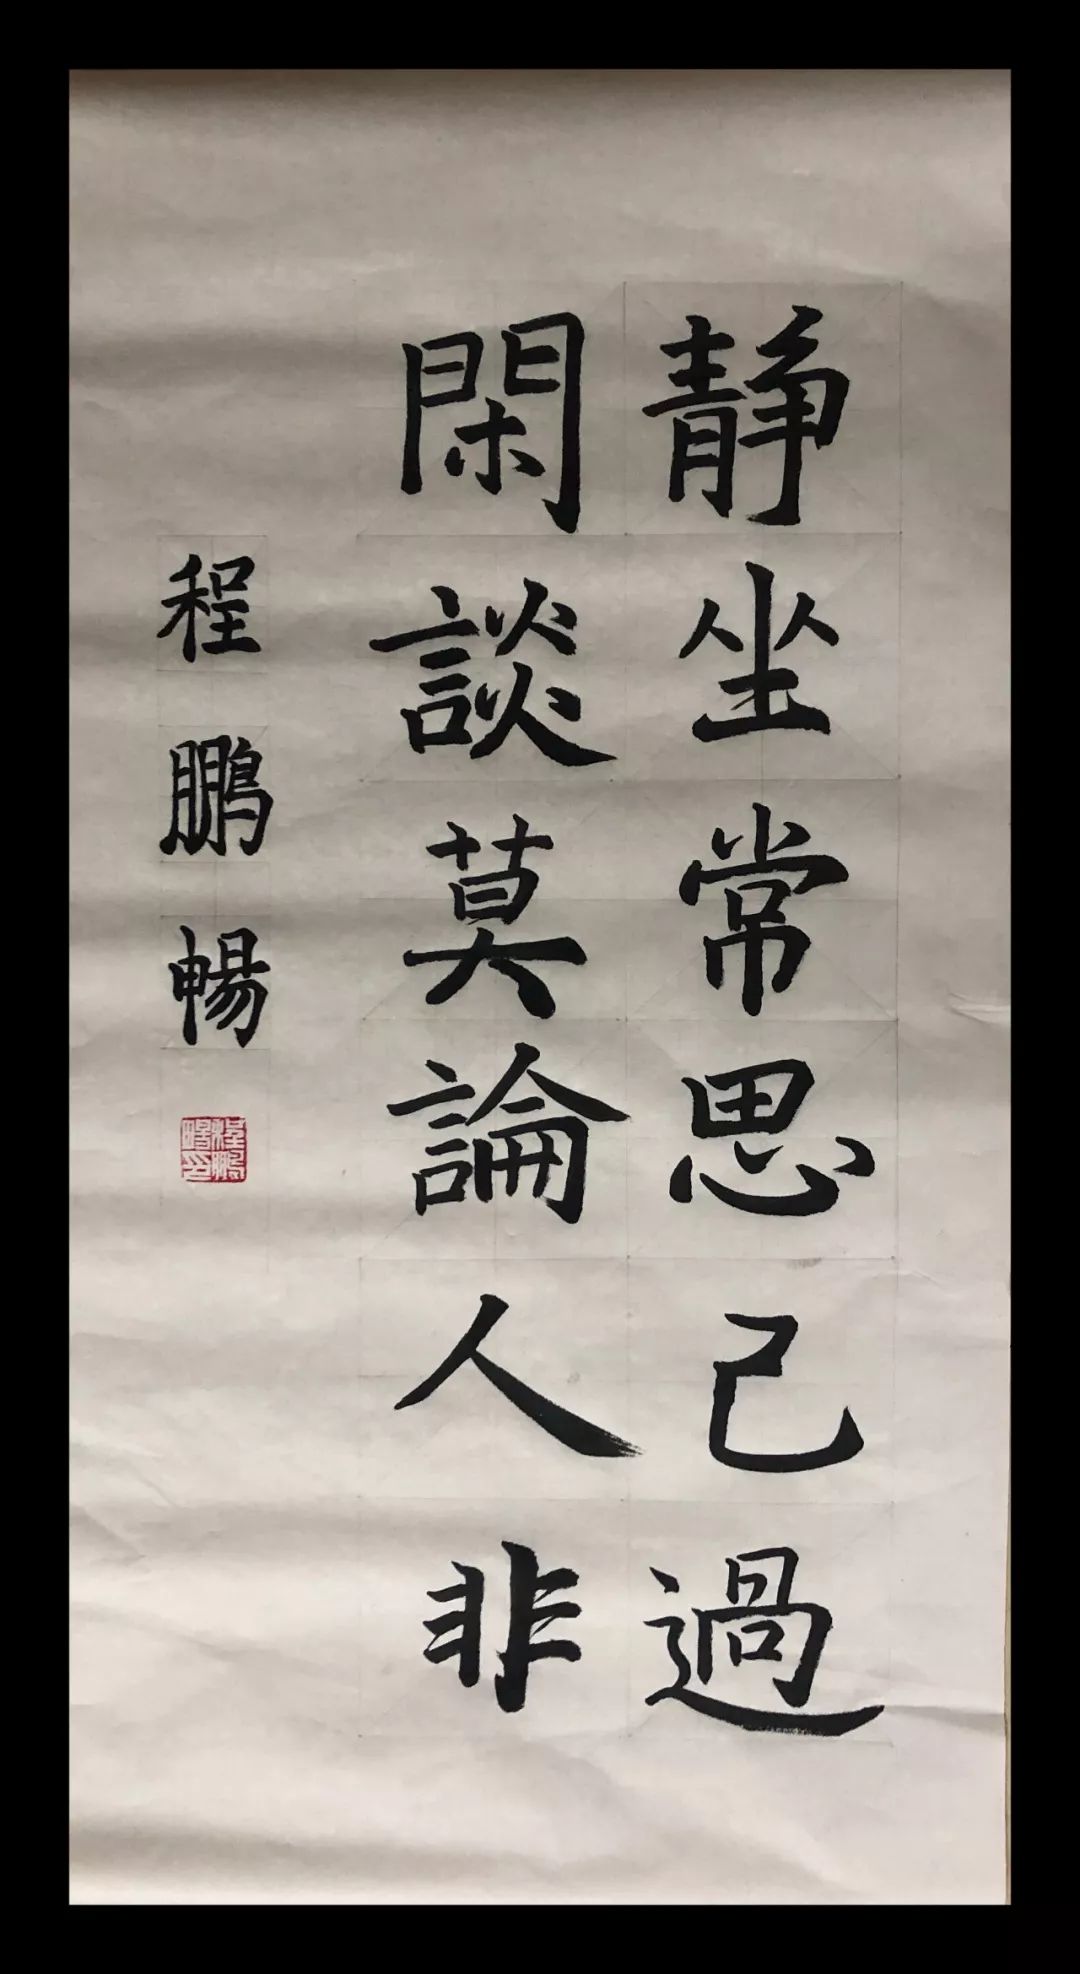 静坐常思己過
閑談莫論人非
程鵬暢
程鵬暢印